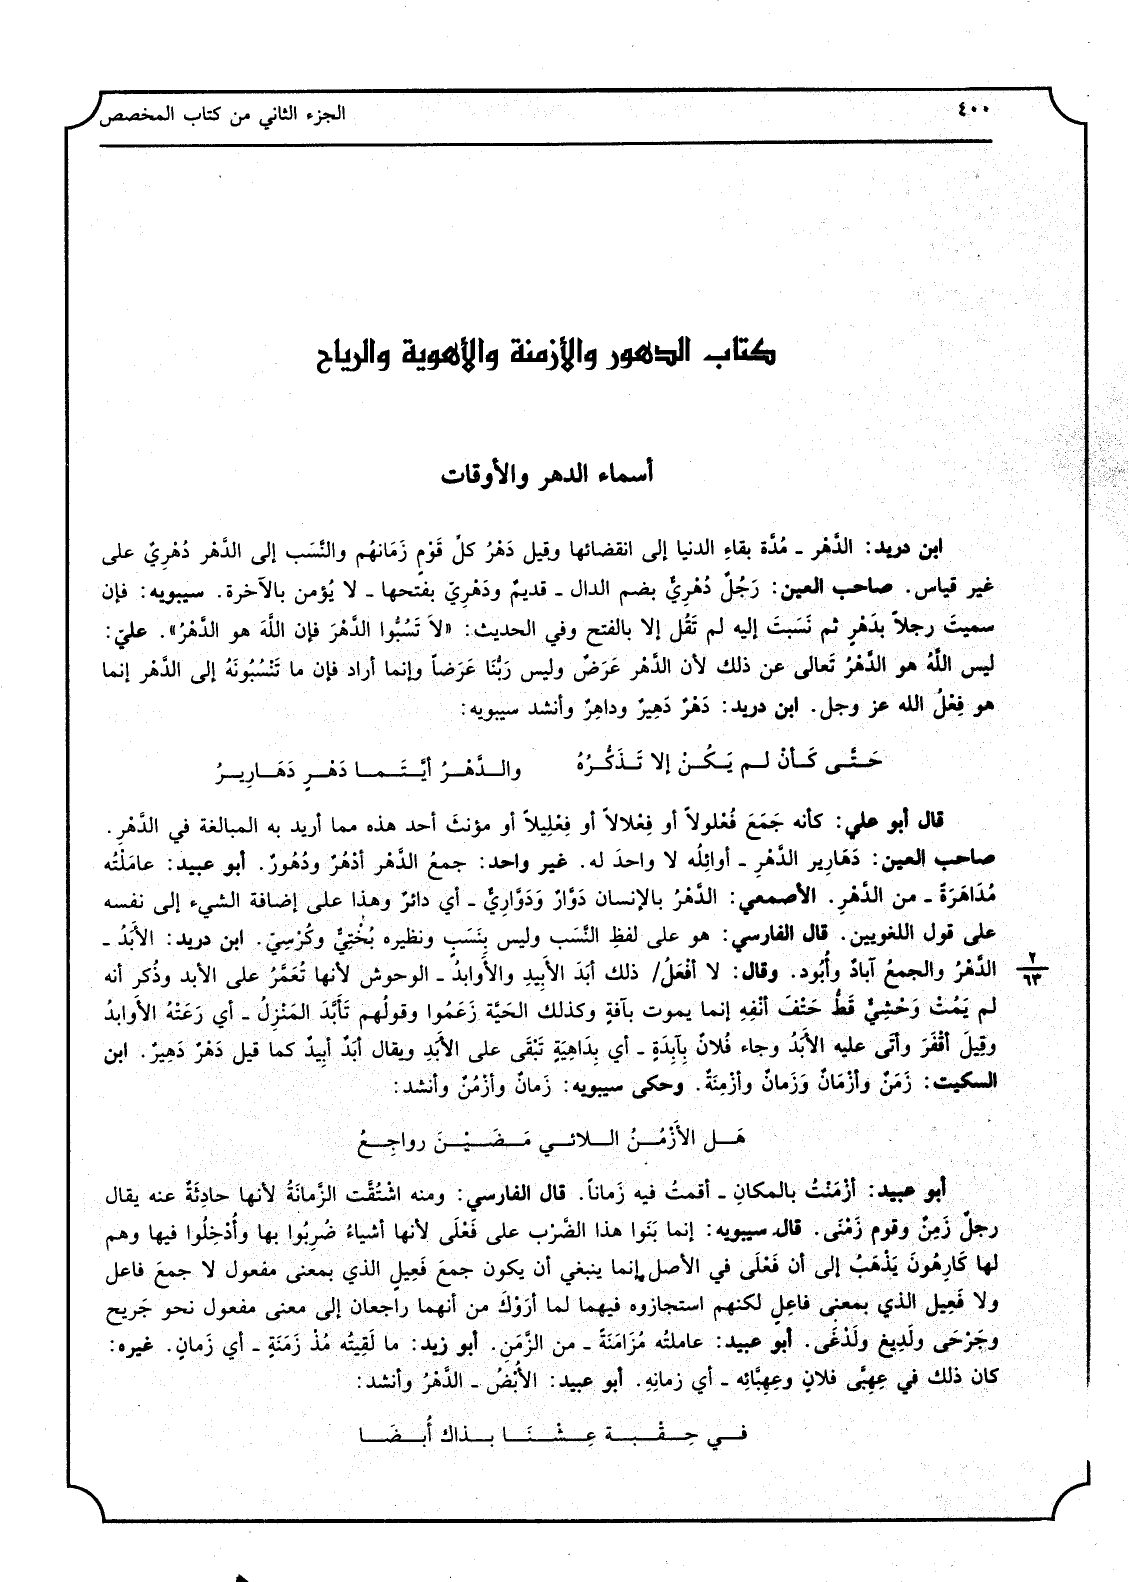 ٤٠٠
الجزء الثاني من كتاب المخصص
كتاب الدهور والأزمنة والأهوية والرياح
أسماء الدهر والأوقات
ابن دريد: الدَّهْر ـ مُدَّة بقاءِ الدنيا إلى انقضائها وقيل دَهْرُ كلِّ قَوْمٍ زَمَانهُم والنَّسَب إلى الدَّهْر دُهْرِيٌ على
غير قياس. صاحب العين: رَجُلٌ دُهْرِيٌّ بضم الدال ـ قديمٌ ودَهْرِيّ بفتحها ـ لا يُؤمن بالآخرة. سيبويه: فإن
سميتَ رجلاً بدَهْرٍ ثم نَسَبتَ إليه لم تَقُل إلا بالفتح وفي الحديث: «لاَ تَسُبُّوا الدَّهْرَ فإن اللَّهَ هو الدَّهْرُ». عليّ:
ليس اللَّهُ هو الدَّهْرُ تَعالى عن ذلك لأن الدَّهْر عَرَضٌ وليس رَبُّنَا عَرَضاً وإنما أراد فإن ما تَنْسُبُونَهُ إلى الدَّهْر إنما
هو فِعْلُ الله عز وجل. ابن دريد: دَهْرٌ دَهِيرٌ وداهِرٌ وأنشد سيبويه:
حَـتَّـى كَـأنْ لـم يَـكُـنْ إلا تَـذَكُّـرُهُ والـدَّهْـرُ أيَّـتَـمـا دَهْـرٍ دَهَـارِيـرُ
قال أبو علي: كأنه جَمَعَ فُعْلولاً أو فِعْلالاً أو فِعْلِيلاً أو مؤنثَ أحد هذه مما أريد به المبالغة في الدَّهْرِ.
صاحب العين: دَهَارِير الدَّهْرِ ـ أوائِلُه لا واحدَ له. غير واحد: جمعُ الدَّهْر أدْهُرٌ ودُهُورٌ. أبو عبيد: عامَلْتُه
مُدَاهَرَةً ـ من الدَّهْرِ. الأصمعي: الدَّهْرُ بالإنسان دَوَّارٌ وَدَوَّارِيٌّ ـ أي دائرٌ وهذا على إضافة الشيء إلى نفسه
على قول اللغويين. قال الفارسي: هو على لفظ النَّسَب وليس بِنَسَبٍ ونظيره بُخْتِيٌّ وكُرْسِيّ. ابن دريد: الأبَدُ ـ
الدَّهْرُ والجمعُ آبادٌ وأُبُود. وقال: لا أفْعَلُ/ ذلك أبَدَ الأبِيدِ والأوابدُ ـ الوحوش لأنها تُعَمَّرُ على الأبد وذُكر أنه
٢
٦٣
لم يَمُتْ وَحْشِيٌّ قَطُّ حَتْفَ أنْفِهِ إنما يموت بآفةٍ وكذلك الحَيَّة زَعَمُوا وقولُهم تَأَبَّدَ المَنْزِلُ ـ أي رَعَتْهُ الأوابدُ
وقِيلَ أقْفَرَ وأتَى عليه الأبَدُ وجاء فُلانٌ بِآبِدَةٍ ـ أي بِدَاهِيَةٍ تَبْقَى على الأبَدِ ويقال أبَدٌ أبِيدٌ كما قيل دَهْرٌ دَهِيرٌ. ابن
السكيت: زَمَنٌ وأزْمَانٌ وَزَمانٌ وأزْمِنَةٌ. وحكى سيبويه: زَمانٌ وأزْمُنٌ وأنشد:
هَـل الأَزْمُـنُ الـلائـي مَـضَـيْـنَ رواجِـعُ
أبو عبيد: أزْمَنْتُ بالمكانِ ـ أقمتُ فيه زَماناً. قال الفارسي: ومنه اشْتُقَّت الزَّمانَةُ لأنها حادِثَةٌ عنه يقال
رجلٌ زَمِنٌ وقوم زَمْنَى. قال سيبويه: إنما بَنَوا هذا الضَّرْب على فَعْلَى لأنها أشياءُ ضُرِبُوا بها وأُدْخِلُوا فيها وهم
لها كَارِهُونَ يَذْهَبُ إلى أن فَعْلَى في الأصل إنما ينبغي أن يكون جمعَ فَعِيلٍ الذي بمعنى مفعول لا جمعَ فاعل
ولا فَعِيل الذي بمعنى فاعِلٍ لكنهم استجازوه فيهما لما أرَوْكَ من أنهما راجعان إلى معنى مفعول نحو جَريح
وجَرْحَى ولَدِيغ ولَدْغَى. أبو عبيد: عاملته مُزَامَنَةً ـ من الزَّمَنِ. أبو زيد: ما لَقِيتُه مُذْ زَمَنَةٍ ـ أي زَمانٍ. غيره:
كان ذلك في عِهِبَّى فلانٍ وعِهِبَّائِه ـ أي زمانِهِ. أبو عبيد: الأبْضُ ـ الدَّهْرُ وأنشد:
فـي حِـقْـبـة عِـشْـنَـا بـذاك أُبـضَـا